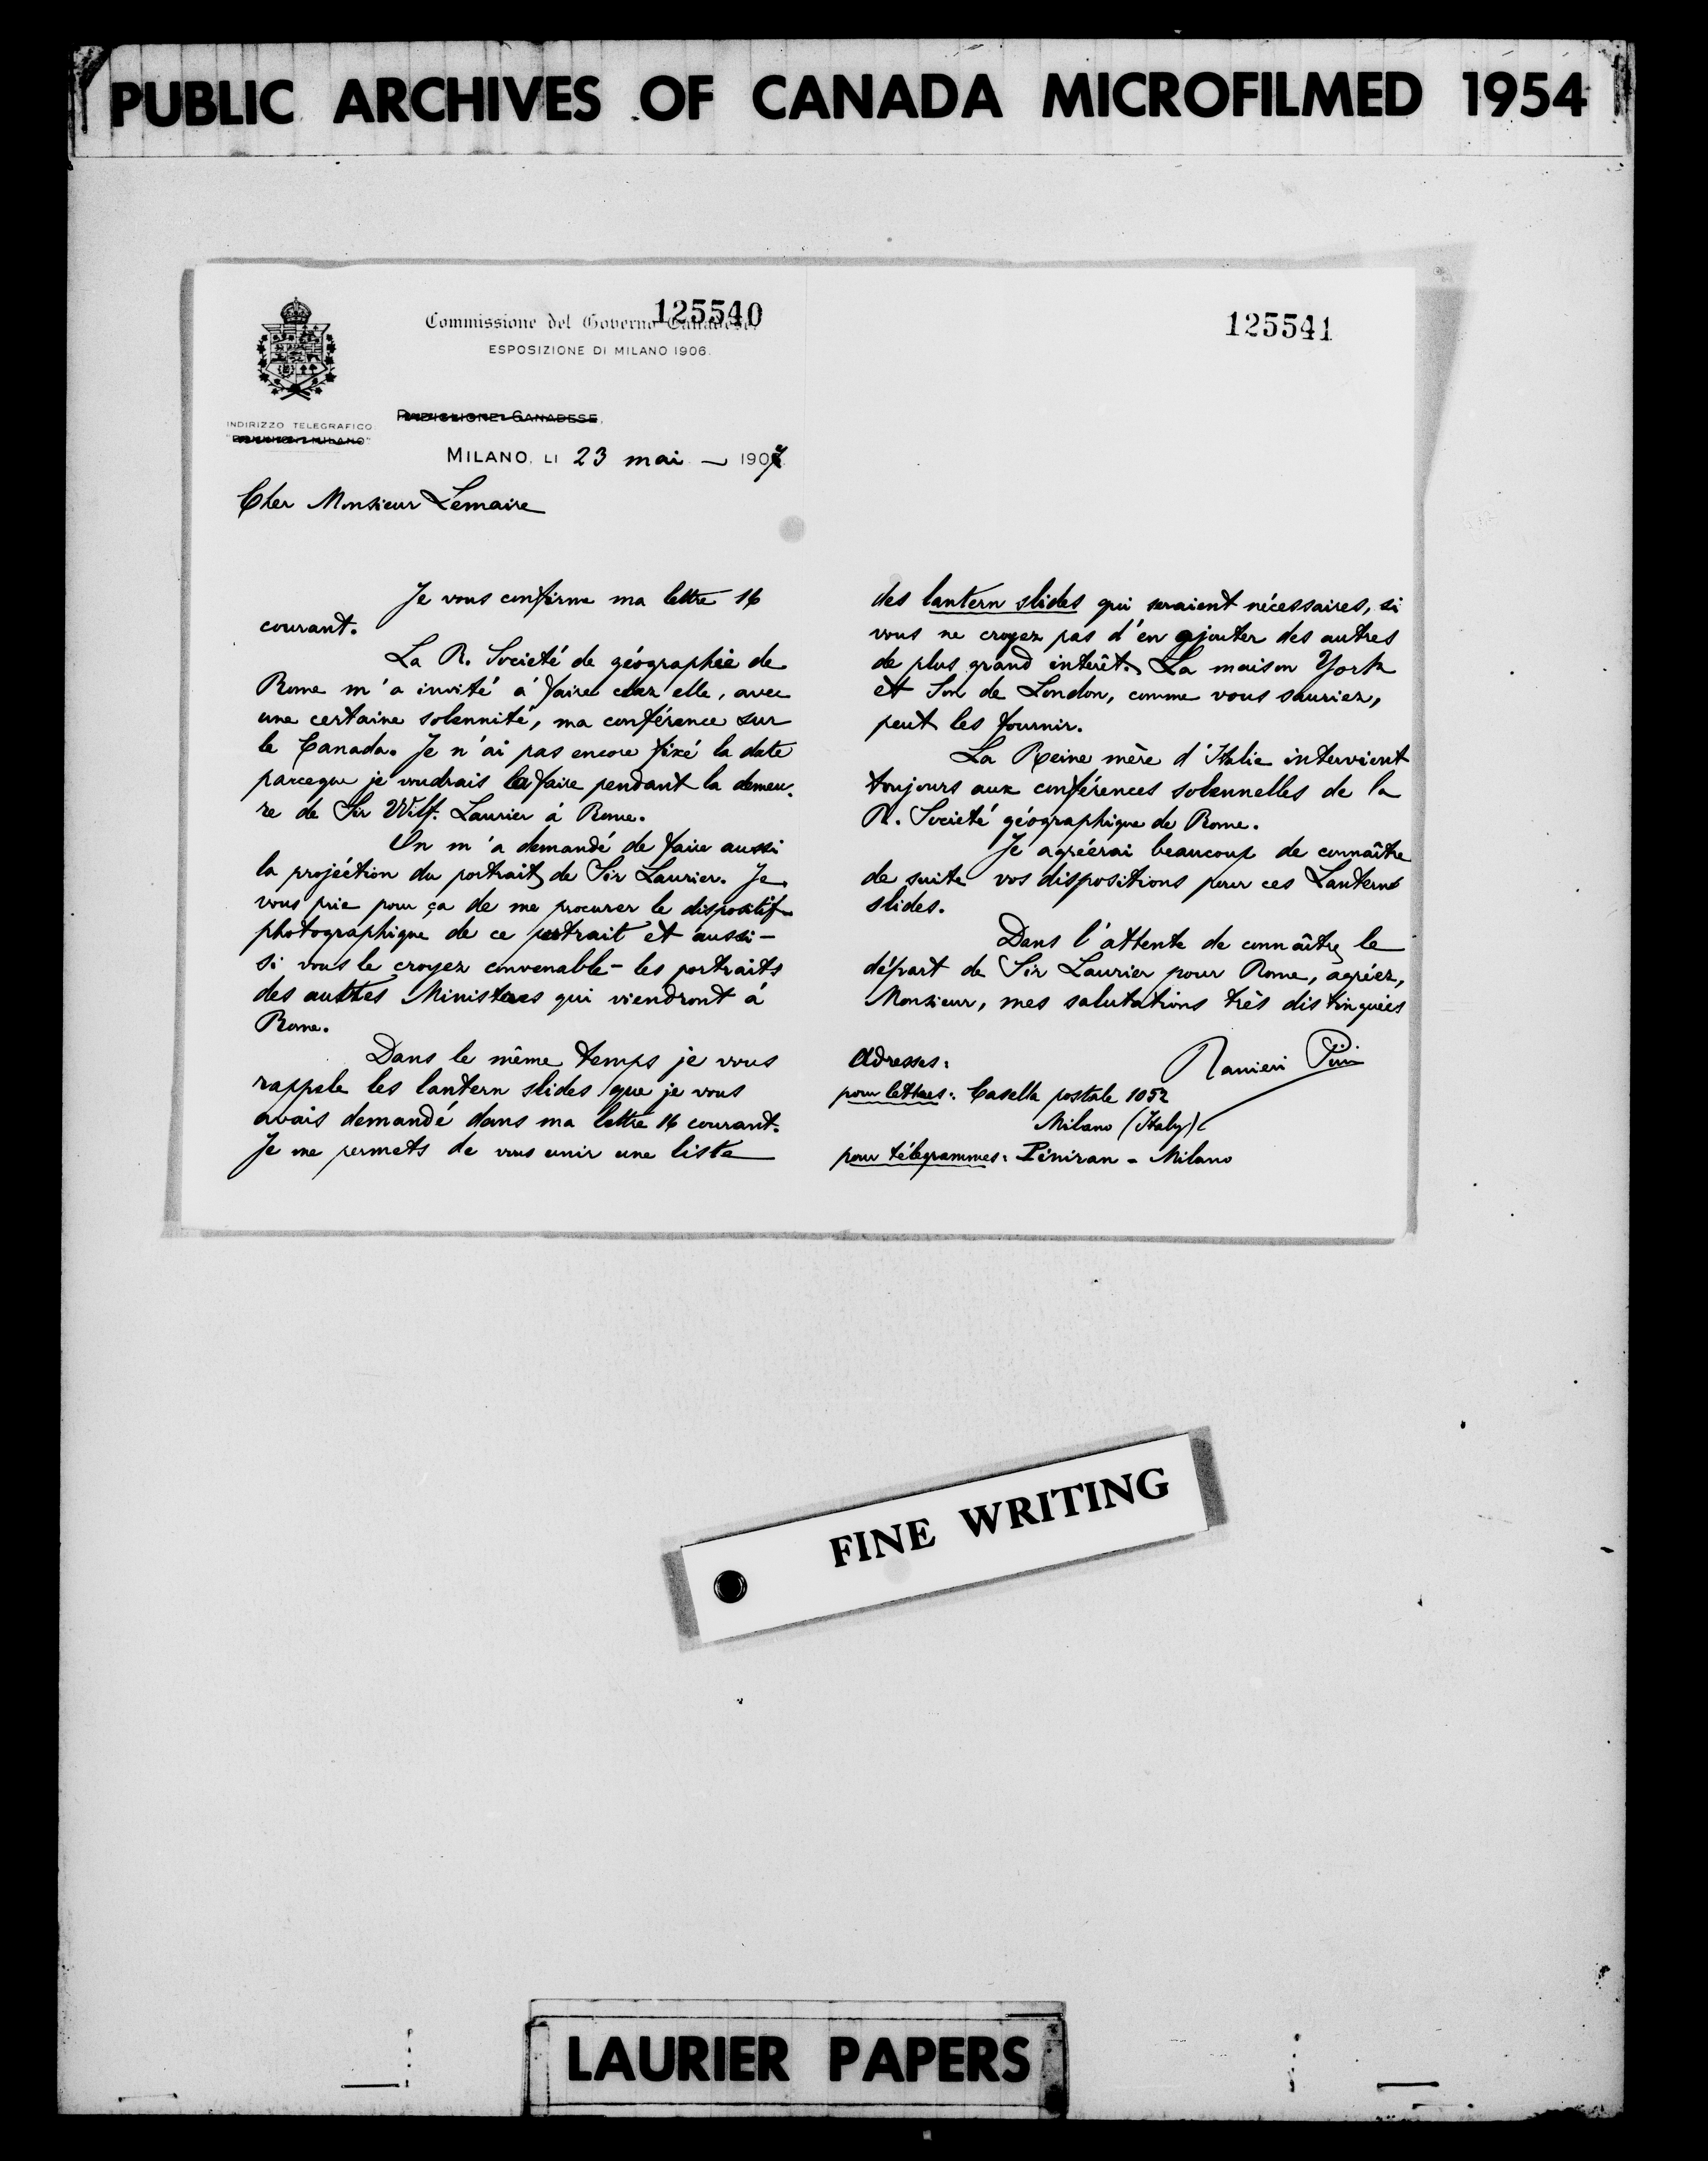 PUBLIC ARCHIVES OF CANADA MICROFILMED 1954
125540
Commissione del Governo Canadese,
ESPOSIZIONE DI MILANO 1906.
PADIGLIONE CANADESE.
INDIRIZZO TELEGRAFICO
MILANO, LI 23 mai — 1907
Cher Monsieur Lemaire
Je vous confirme ma lettre 16
courant.
La R. Societé de géographie de
Rome m'a invité á faire chez elle, avec
une certaine solennité, ma conférence sur
le Canada. Je n'ai pas encore fixé la date
parceque je voudrais la faire pendant la demeu-
re de Sir Wilf. Laurier á Rome.
On m'a demandé de faire aussi
la projéction du portrait de Sir Laurier. Je
vous prie pour ça de me procurer le dispositif
photographique de ce portrait et aussi —
si vous le croyez convenable — les portraits
des autres Ministres qui viendront á
Rome.
Dans le même temps je vous
rappele les lantern slides que je vous
avais demandé dans ma lettre 16 courant.
Je me permets de vous unir une liste
125541
des lantern slides qui seraient nécessaires, si
vous ne croyez pas d'en ajouter des autres
de plus grand intérêt. La maison York
et Son de London, comme vous sauriez,
peut les fournir.
La Reine mère d'Italie intervient
toujours aux conférences solennelles de la
R. Societé géographique de Rome.
Je agréerai beaucoup de connaître
de suite vos dispositions pour ces Lanterns
slides.
Dans l'attente de connaître le
départ de Sir Laurier pour Rome, agréez,
Monsieur, mes salutations très distinguées
Ranieri Pini
Adresses:
pour lettres: Casella postale 1052
Milano (Italy)
pour télegrammes: Piniran - Milano
FINE WRITING
LAURIER PAPERS